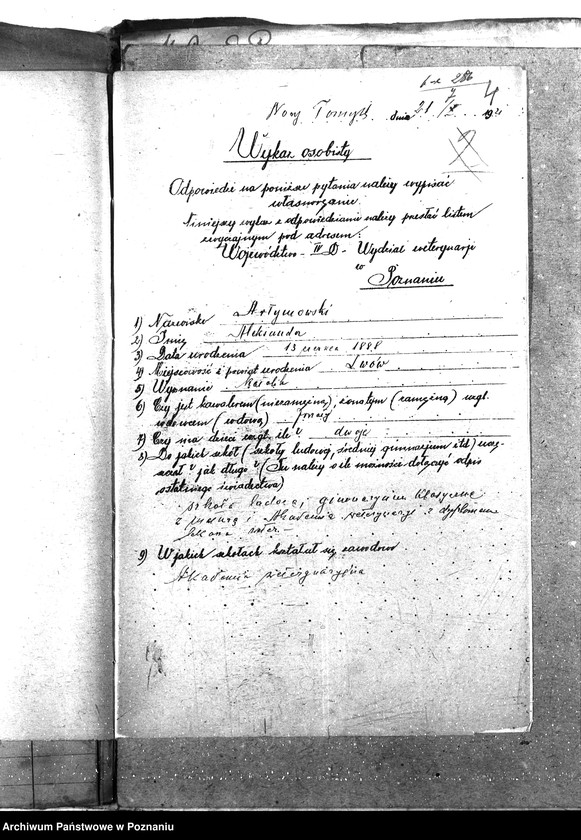 Nowy Tomyśl dnia 21 1921
4
Wykaz osobisty
Odpowiedzi na poniższe pytania należy wypisać
własnoręcznie.
Niniejszy wykaz z odpowiedziami należy przesłać listem
zwyczajnym pod adresem:
Województwo - IV D - Wydział weterynarji
w
Poznaniu
1) Nazwisko Artymowski
2) Imię Aleksander
3) Data urodzenia 13 1888
4) Miejscowość i powiat urodzenia Lwów
5) Wyznanie
6) Czy jest kawalerem (niezamężną), żonatym (zamężną) wzgl.
wdowcem (wdową) żonaty
7) Czy ma dzieci wzgl. ile? dwoje
8) Do jakich szkół (szkoły ludowej, średniej gimnazjum itd.) uczę-
szczał i jak długo? (Tu należy o ile możności dołączyć odpis
ostatniego świadectwa)
szkoła ludowa, gimnazyum klasyczne
z maturą i Akademia weterynaryi z dyplomem
lekarza weter.-
9) W jakich szkołach kształcił się zawodowo
Akademia weterynaryjna
Archiwum Państwowe w Poznaniu